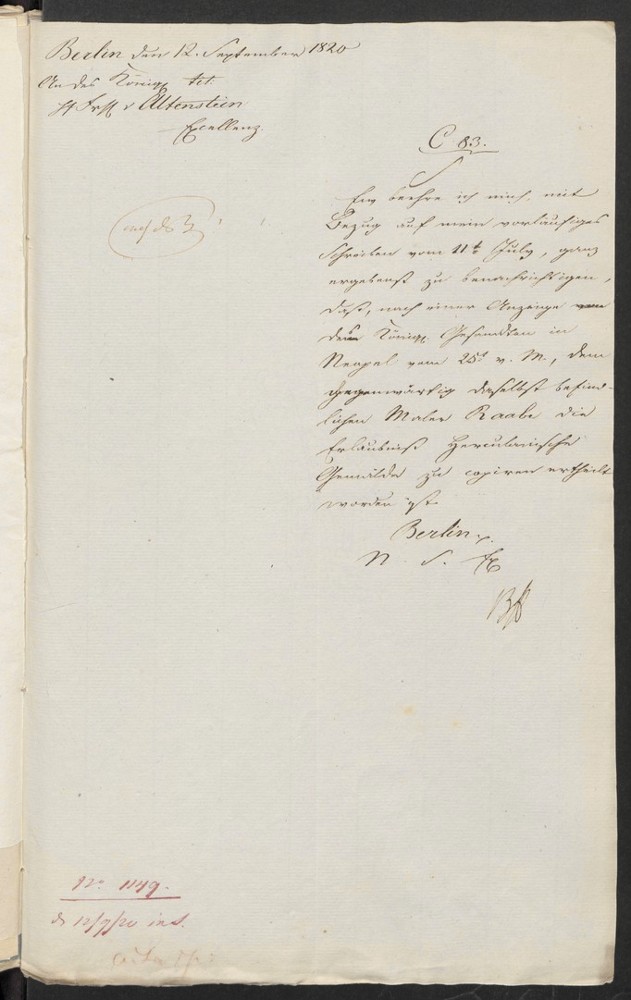 Berlin den 12. September 1820
An des Königl. tit.
H. Frh. v Altenstein
Excellenz.
C 83.
Ew beehre ich mich, mit
Bezug auf mein vorläufiges
Schreiben vom 11t July, ganz
ergebenst zu benachrichtigen,
daß, nach einer Anzeige von
dem Königl. Gesandten in
Neapel vom 25t v. M., dem
gegenwärtig daselbst befind-
lichen Maler Raabe die
Erlaubniß Herculanische
Gemälde zu copiren ertheilt
worden ist
Berlin
N. S. Ex
No 1149.
12/9/20